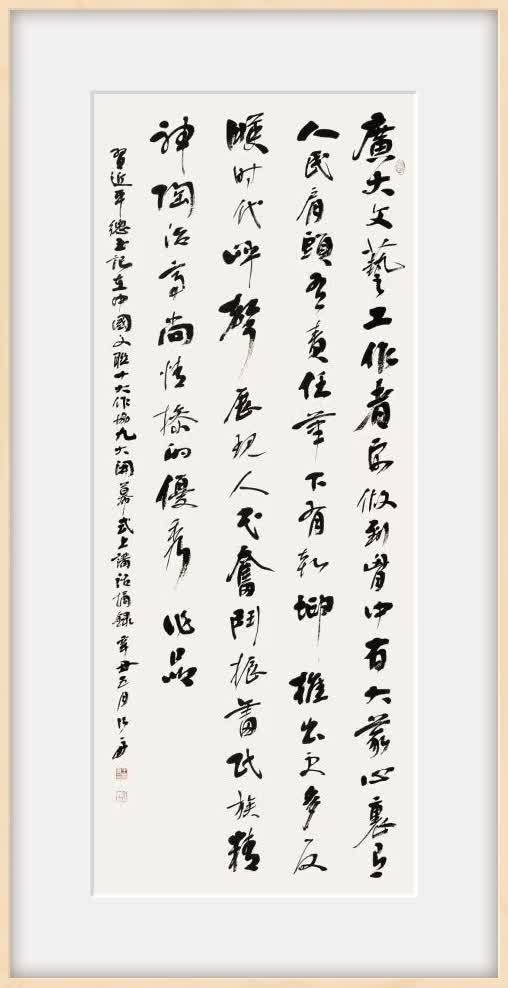 廣大文藝工作者要做到胸中有大義心裏有
人民肩頭有責任筆下有乾坤推出更多反
映时代呼聲展现人民奮鬥振奮民族精
神陶冶高尚情操的優秀作品
習近平總书記在中國文聯十大作協九大開幕式上講話摘錄辛丑五月